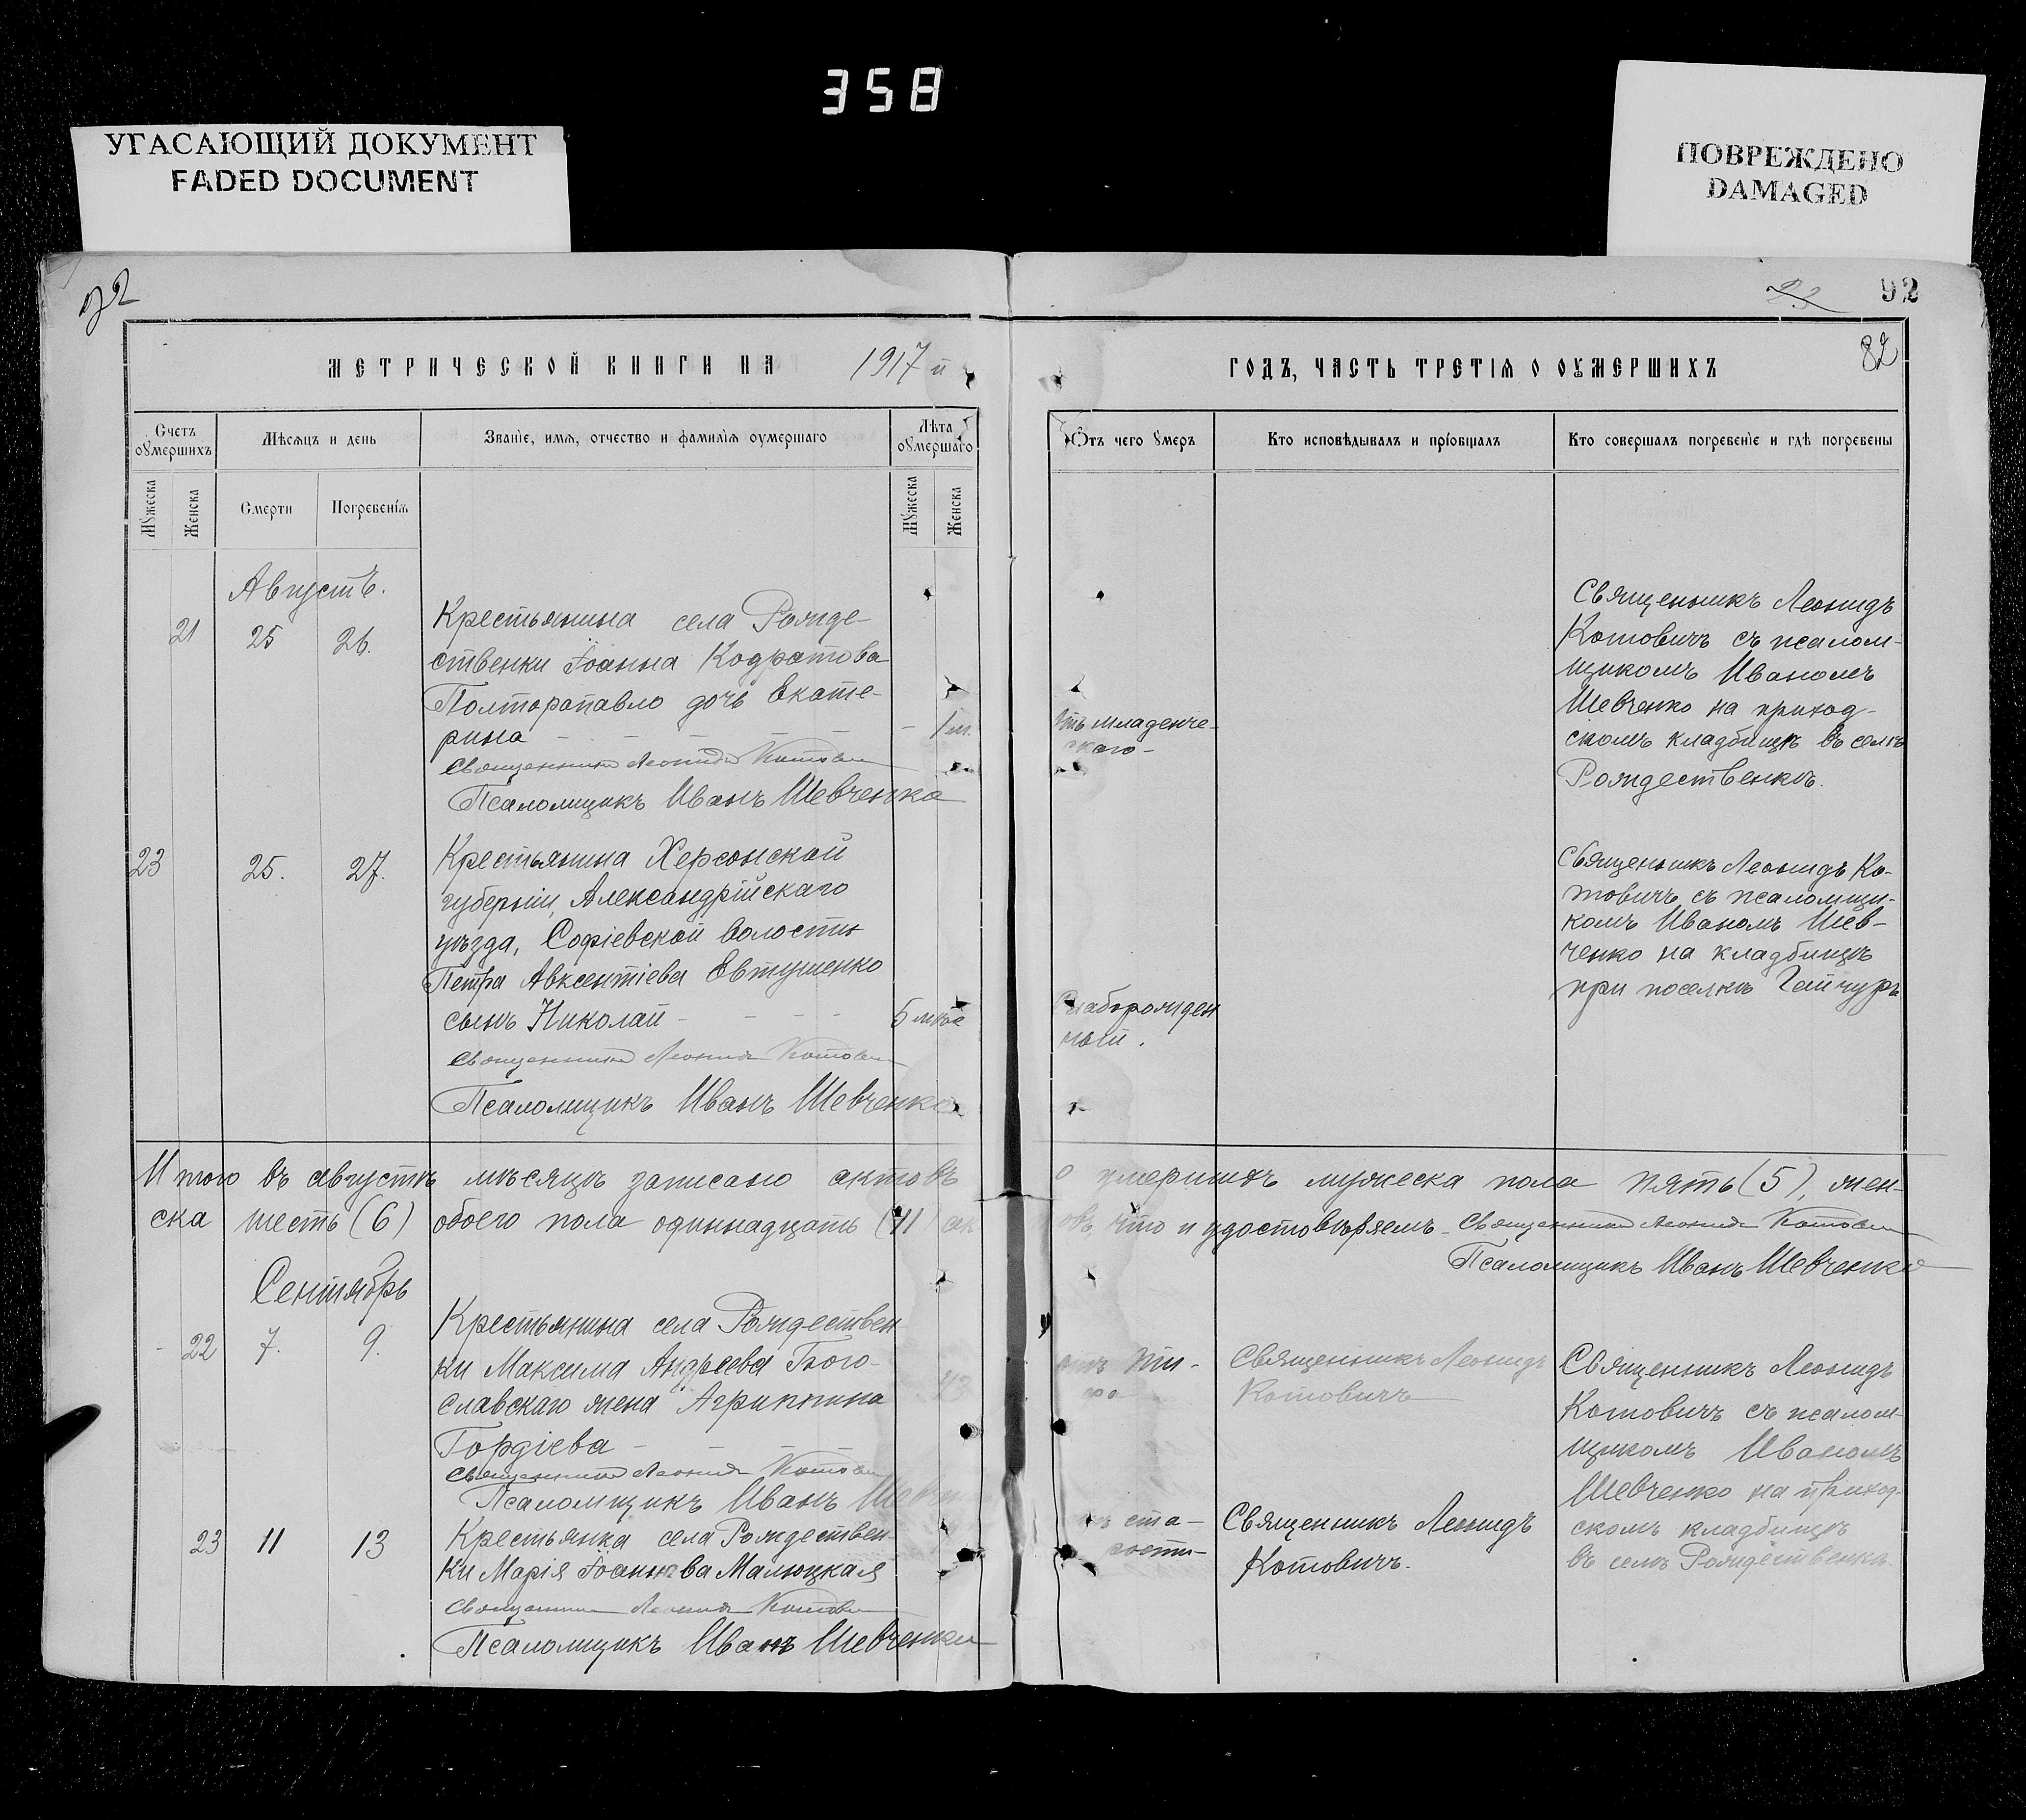 358
УГАСАЮЩИЙ ДОКУМЕНТ
FADED DOCUMENT
ПОВРЕЖДЕНО
DAMAGED
92
82
МЕТРИЧЕСКОЙ КНИГИ НА 1917 й
ГОДЪ, ЧАСТЬ ТРЕТІѦ О ОУМЕРШИХЪ
Счетъ оумершихъ
Мѣсяцъ и день
Званіе, имя, отчество и фамилія оумершаго
Лѣта оумершаго
Отъ чего умеръ
Кто исповѣдывалъ и пріобщалъ
Кто совершалъ погребеніе и гдѣ погребены
Мужеска
Женска
Смерти
Погребенія
Мужеска
Женска
Августъ.
21 25 26.
Крестьянина села Рожде-
ственки Іоанна Кодратова
Полторапавло дочь Екате-
рина - 1 м.
Священникъ Леонидъ Котович
Псаломщикъ Иванъ Шевченко
младенче-
ского-
Священникъ Леонидъ
Котовичъ съ псалом-
щикомъ Иваномъ
Шевченко на приход-
скомъ кладбищѣ въ селѣ
Рождественкѣ.
23 25. 27.
Крестьянина Херсонской
губерніи, Александрійскаго
уѣзда, Софіевской волости
Петра Авксентіева Евтушенко
сынъ Николай - 5 мѣс
Священникъ Леонидъ Котович
Псаломщикъ Иванъ Шевченко
Слаборожден
ный.
Священникъ Леонидъ Ко-
товичъ съ псаломщи-
комъ Иваномъ Шев-
ченко на кладбищѣ
при поселкѣ Гайчуръ
Итого въ августѣ мѣсяцѣ записано актовъ о умершихъ мужеска пола пять (5), жен-
ска шесть (6) обоего пола одиннадцать (11) актовъ, что и удостовѣряемъ Священникъ Леонидъ Котович
Псаломщикъ Иванъ Шевченко
Сентябрь
22 7. 9.
Крестьянина села Рождествен
ки Максима Андреева Бого-
славскаго жена Агриппина
Гордіева -
Священникъ Леонидъ Котович
Псаломщикъ Иванъ
Священникъ Леонидъ
Котовичъ
Священникъ Леонидъ
Котовичъ съ псалом-
щикомъ Иваномъ
Шевченко на приход-
скомъ кладбищѣ
въ селѣ Рождественкѣ.
23 11 13
Крестьянка села Рождествен
ки Марія Іоаннова Малюцкая
Священникъ Леонидъ Котович
Псаломщикъ Иванъ Шевченко
ста-
рости
Священникъ Леонидъ
Котовичъ.